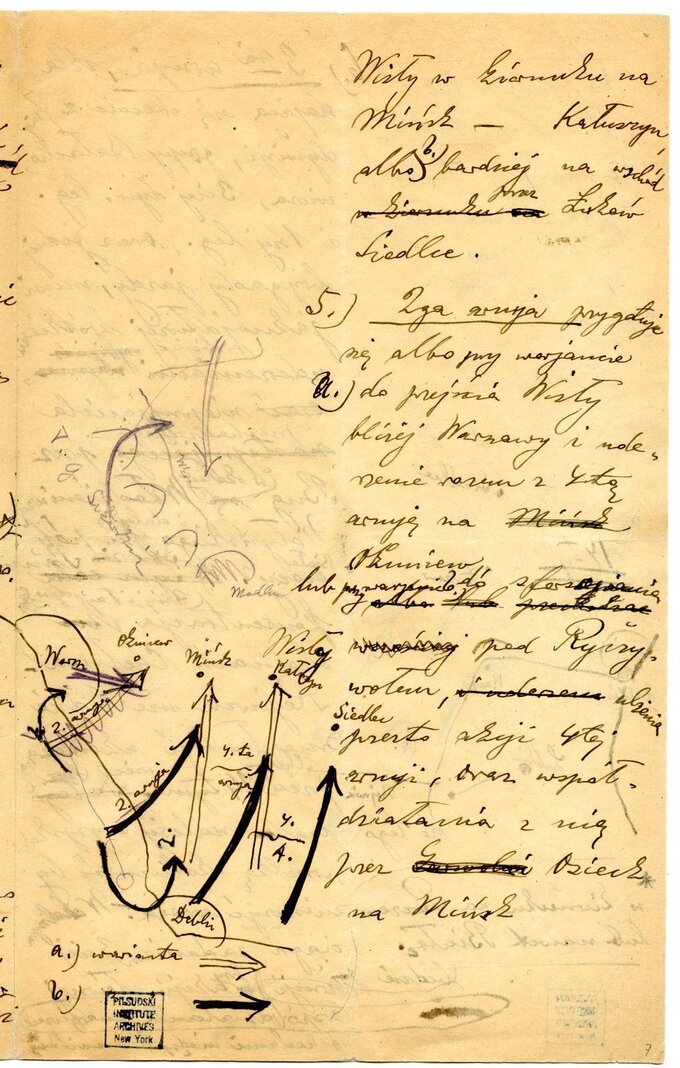 Wisły w kierunku na
Mińsk — Kałuszyn,
albo b.) bardziej na wschód
w kierunku na przez Łuków
Siedlce.
5.) 2ga armja przygotuje
się albo przy warjancie
a.) do przejścia Wisły
bliżej Warszawy i ude-
rzenie razem z 4tą
armją na Mińsk
Okuniew
lub przy warjancie b. do sforsowania
Wisły pod Ryczy-
wołem, i uderzem ulżenia
przesto akcji 4tej
armji, oraz współ-
działania z nią
przez Garwolin Osieck
na Mińsk
Modlin
Warsz
Okuniew
Mińsk
Kałuszyn
Siedlce
2. armja
2. armja
4. ta
armja
2.
4.
A.
Dęblin
a.) warianta
b.)
PILSUDSKI
INSTITUTE
ARCHIVES
New York
7